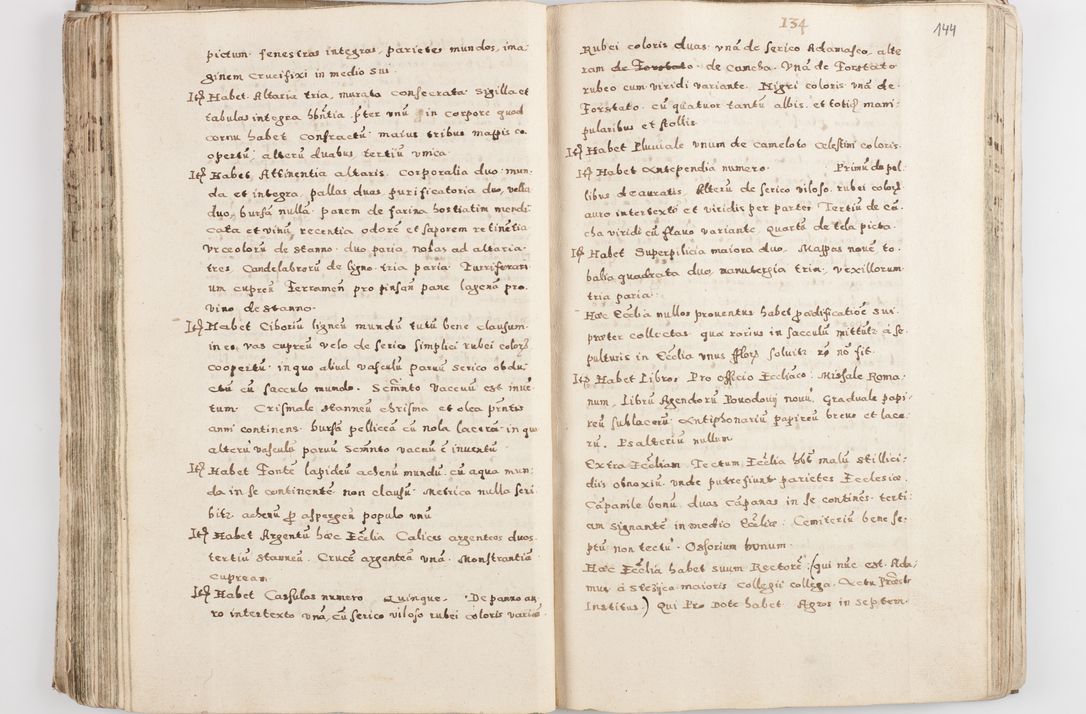 pictum. fenestras integras, parietes mundos, ima
ginem Crucifixi in medio sui.
Itē Habet Altaria tria, murata consecrata sigilla et
tabulas integra hbn̄tia p̄ter vnū in corpore quod
cornu habet confractū maius tribus mappis co
opertū, alterū duabus tertiū vnica.
Itē Habet Attinentia altaris. corporalia duo mun
da et integra, pallas duas purificatoria duo, vella
duo, bursā nulla. panem de farina hostiatim mendi
cata et vinū recentia odorē et saporem retinētia
Vrceolorū de stanno duo paria, nolas ad altaria
tres. Candelabrorū de ligno tria paria. Turriferari
um cupreū Ferramen pro pinsan pane lagenā pro
vino de stanno.
Itē Habet Ciboriū ligneū mundū tutū bene clausum
in eo, vas cupreū velo de serico simplici rubei colorꝫ
coopertū. in quo aliud vasculū paruū serico obdu
ctū cū sacculo mundo. Scmn̄to vaccuū est inuē
tum. Crismale stanneū chrisma et olea pn̄tis
anni continens. bursā pelliceā cū nola lacerā in qu
alterū vasculū paruū Scmn̄to vacuū ē inuentū
Itē Habet Fontē lapideū achenū mundū cū aqua mun
da in se continentē non clausū. Metrica nulla scri
bitr. achenū p̱ aspergen populo vnū
Itē Habet Argentū hæc Ecc̄lia Calices argenteos duos
tertiū stanneū. Crucē argenteā vnā. Monstrantiā
cupream.
Itē Habet Cassulas numero Quinque. De panno au
ro intertexto vnā, cū serico viloso rubei coloris varian
134
144
Rubei coloris duas vnā de serico Adamasco, alte
ram de Forstato de Cancha. Vnā de Forstato
rubeo cum viridi variante. Nigri coloris vnā de
Forstato. cū quatuor tantū albis. et totiꝫ mani
pularibus et stollis
Itē Habet Pluuiale vnum de cameloto Cælestini coloris.
Itē Habet Antependia numero Primū de pel
libus deauratis. Alterū de serico viloso rubei colorꝫ
auro intertextō et viridis per partes Tertiū de cā
cha viridi cū flauo variante quartū de tela picta.
Itē Habet Superpilicia maiora duo. Mappas nouē to
balia quadrata duo, manutergia tria, vexillorum
tria paria.
Hæc Ecc̄lia nullos prouentus habet p̱ ædificatioē sui
præter collectas. qua rarius in sacculū mittūtr. à se
pulturis in Ecc̄lia vnus fflors soluitr rō nō fit.
Itē Habet Libros Pro officio Eccl̄iaco. Missale Roma
num, Librū Agendorū Powodouij nouū. Graduale papi
reū sublacerū Antiphonariū papireū breue et lace
rū. Psalteriū nullum
Extra Eccl̄iam. Tectum Ecc̄lia hb̄t malū stillici
diis obnoxiū vnde putrefiunt parietes Ecclesiæ.
Cāpanile bonū duas cāpanas in se continēs terti
am signantē in medio Eccl̄iæ. Cemiteriū bene se
ptū non tectū. Ossorium bonum.
Hæc Ecc̄lia habet suum Rectorē (qui nūc est Ada
mus à Stēżica maioris Collegii collega. Actu Præsbr
Institus.) Qui Pro Dote habet Agros in septem